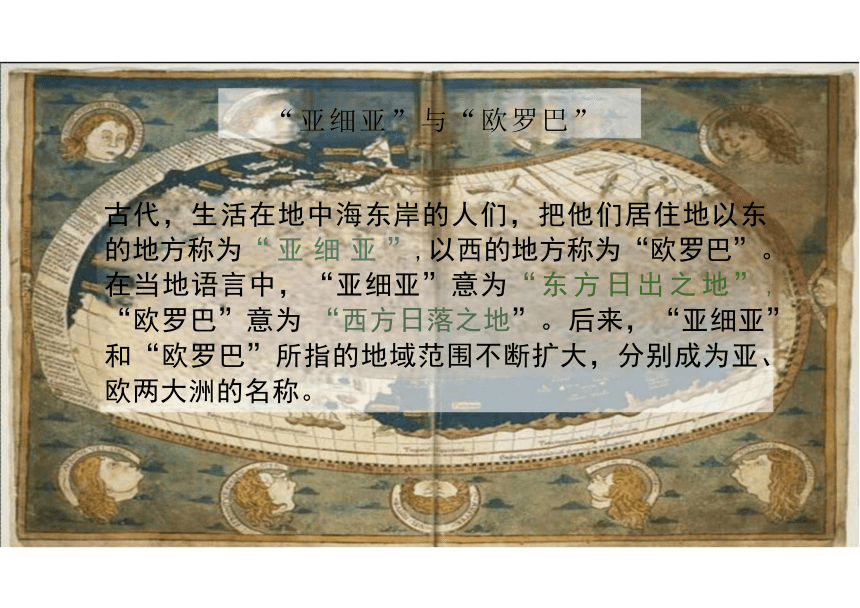 “亚细亚”与“欧罗巴”
古代，生活在地中海东岸的人们，把他们居住地以东
的地方称为“亚细亚”,以西的地方称为“欧罗巴”。
在当地语言中，“亚细亚”意为“东方日出之地”,
“欧罗巴”意为 “西方日落之地”。后来，“亚细亚”
和“欧罗巴”所指的地域范围不断扩大，分别成为亚、
欧两大洲的名称。